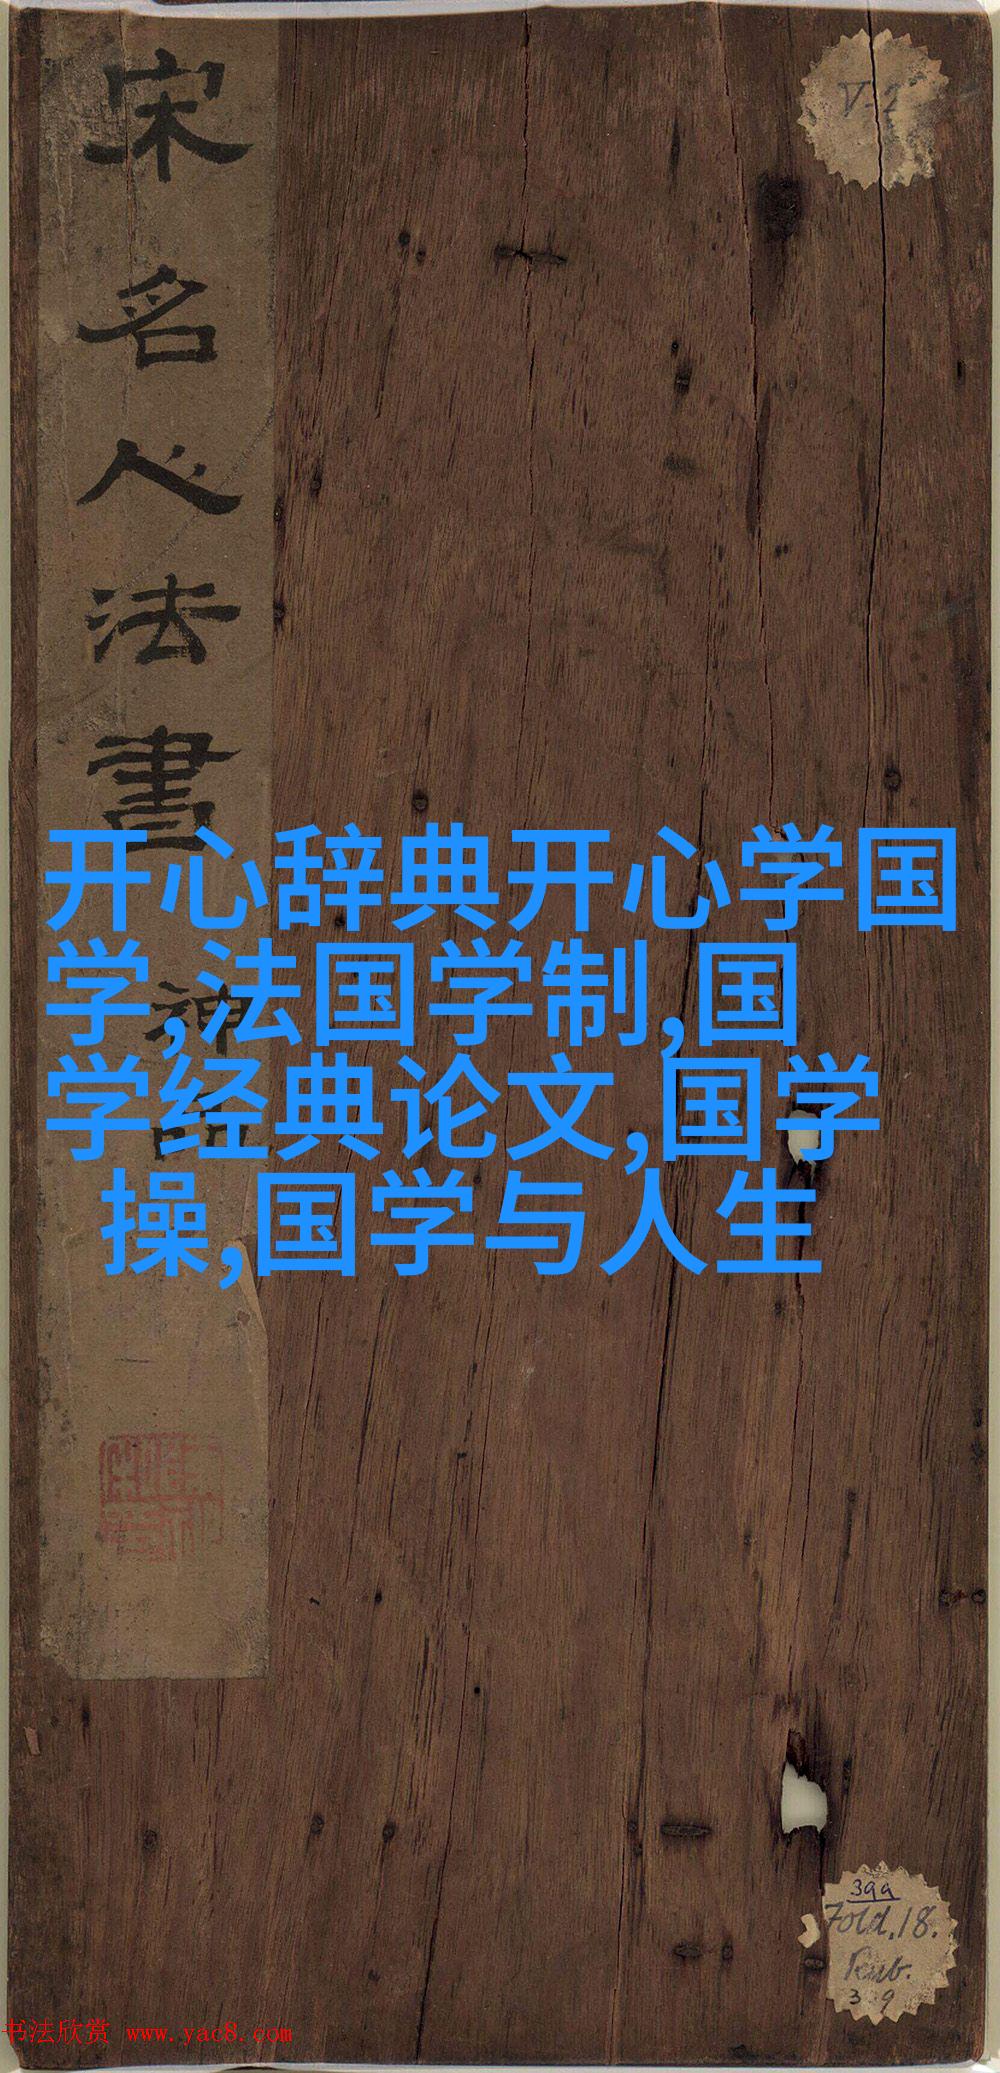 宋名人法書
神品
V-2
开心辞典开心学国
学,法国学制,国
学经典论文,国学
操,国学与人生
399
Fold.18.
Rub.
书法欣赏 www.yac8.com